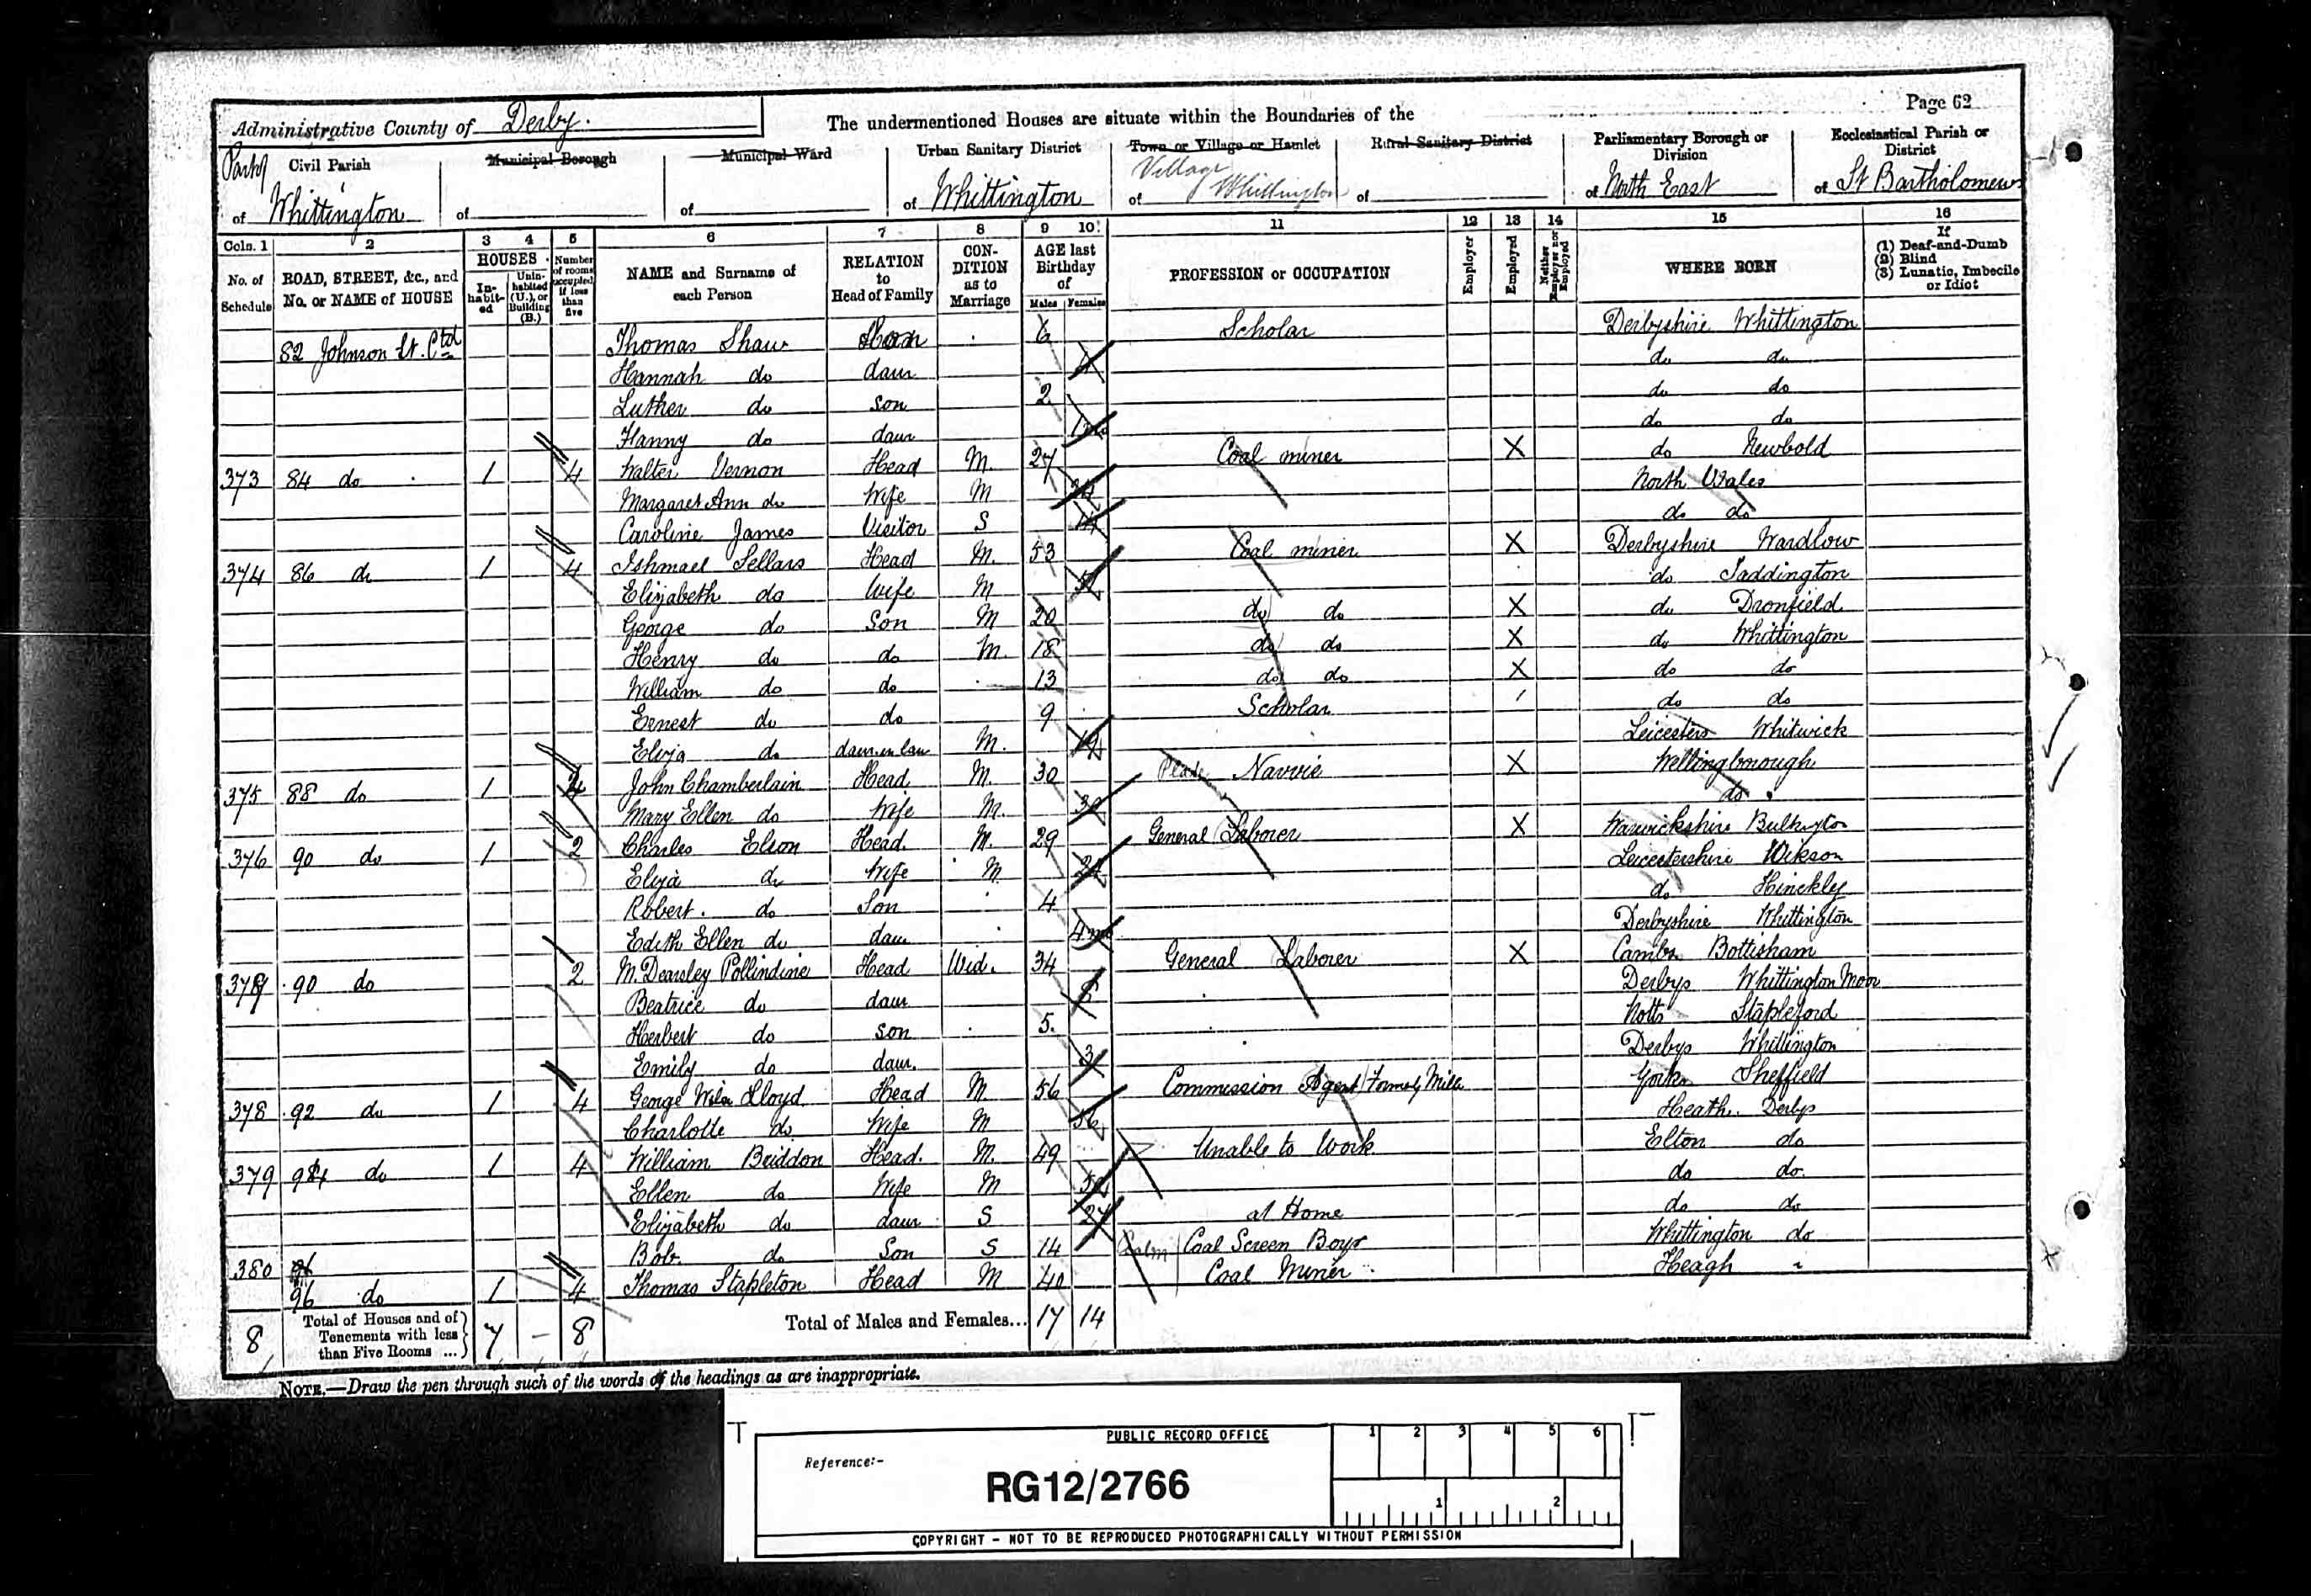 Page 62
Administrative County of Derby.
The undermentioned Houses are situate within the Boundaries of the
Part of Civil Parish Municipal Borough Municipal Ward Urban Sanitary District Town or Village or Hamlet Rural Sanitary District Parliamentary Borough or Division Ecclesiastical Parish or District
of Whittington of of of Whittington of Village Whittington of of North East of St Bartholomews
Coln. 1 2 3 4 5 6 7 8 9 10 11 12 13 14 15 16
No. of Schedule ROAD, STREET, &c., and No. or NAME of HOUSE HOUSES Inhabited Uninhabited (U.), or Building (B.) Number of rooms occupied if less than five NAME and Surname of each Person RELATION to Head of Family CONDITION as to Marriage AGE last Birthday of Males Females PROFESSION or OCCUPATION Employer Employed Neither Employer nor Employed WHERE BORN If (1) Deaf-and-Dumb (2) Blind (3) Lunatic, Imbecile or Idiot
82 Johnson St. Ctd Thomas Shaw Son 6 Scholar Derbyshire Whittington
Hannah do daur 4 do do
Luther do son 2 do do
Fanny do daur 1 mo do do
373 84 do 1 4 Walter Vernon Head M 27 Coal miner X do Newbold
Margaret Ann do Wife M North Wales
Caroline James Visitor S 14 do do
374 86 do 1 4 Ishmael Sellars Head M. 53 Coal miner X Derbyshire Wardlow
Elizabeth do Wife M do Taddington
George do Son M 20 do do X do Dronfield
Henry do do M. 18 do do X do Whittington
William do do 13 do do X do do
Ernest do do 9 Scholar do do
Eliza do daur in law M. 19 Leicesters Whitwick
375 88 do 1 4 John Chamberlain Head M. 30 Navvie X Wellingborough
Mary Ellen do Wife M. 30 do
376 90 do 1 2 Charles Elson Head M. 29 General Laborer X Warwickshire Bulkyton
Eliza do Wife M Leicestershire Wikson
Robert. do Son 4 do Hinckley
Edith Ellen do daur 4 mo Derbyshire Whittington
377 90 do 2 M. Dearsley Pollindine Head Wid. 34 General Laborer X Cambs Bottisham
Beatrice do daur 8 Derbys Whittington Moor
Herbert do son 5. Notts Stapleford
Emily do daur. 3 Derbys Whittington
378 92 do 1 4 George Wilm Lloyd Head M. 56 Commission Agent Formerly Mill Yorks Sheffield
Charlotte do Wife M 56 Heath. Derbys
379 94 do 1 4 William Briddon Head. M. 49 Unable to Work Elton do
Ellen do Wife M do do.
Elizabeth do daur S 27 at Home do do
Bob. do Son S 14 Coal Screen Boy Whittington do
380 96 do 1 4 Thomas Stapleton Head M 40 Coal Miner Heagh
8 Total of Houses and of Tenements with less than Five Rooms ... 7 - 8 Total of Males and Females... 17 14
NOTE.—Draw the pen through such of the words of the headings as are inappropriate.
PUBLIC RECORD OFFICE
1 2 3 4 5 6
Reference:-
RG12/2766
1 2
COPYRIGHT - NOT TO BE REPRODUCED PHOTOGRAPHICALLY WITHOUT PERMISSION